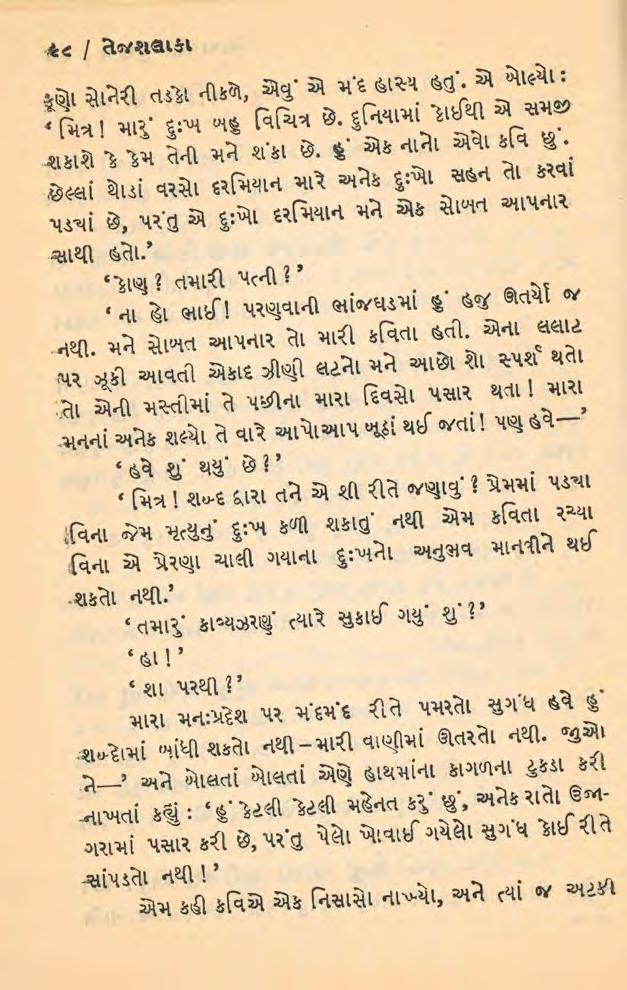 ૨૮ / તેજશલાકા
કૂણો સોનેરી તડકો નીકળે, એવું એ મંદ હાસ્ય હતું. એ બોલ્યો :
‘ મિત્ર ! મારું દુઃખ બહુ વિચિત્ર છે. દુનિયામાં કોઈથી એ સમજી
શકાશે કે કેમ તેની મને શંકા છે. હું એક નાનો એવો કવિ છું.
છેલ્લાં થોડાં વરસો દરમિયાન મારે અનેક દુઃખો સહન તો કરવાં
પડયાં છે, પરંતુ એ દુઃખો દરમિયાન મને એક સોબત આપનાર
સાથી હતો.’
‘ કોણ ? તમારી પત્ની ? ’
‘ ના હો ભાઈ ! પરણવાની ભાંજઘડમાં હું હજુ ઊતર્યો જ
નથી. મને સોબત આપનાર તો મારી કવિતા હતી. એના લલાટ
પર ઝૂકી આવતી એકાદ ઝીણી લટનો મને આછો શો સ્પર્શ થતો
તો એની મસ્તીમાં તે પછીના મારા દિવસો પસાર થતા ! મારા
મનનાં અનેક શલ્યો તે વારે આપોઆપ બૂઠાં થઈ જતાં ! પણ હવે—’
‘ હવે શું થયું છે ? ’
‘ મિત્ર ! શબ્દ દ્વારા તને એ શી રીતે જણાવું ? પ્રેમમાં પડયા
વિના જેમ મૃત્યુનું દુઃખ કળી શકાતું નથી એમ કવિતા રચ્યા
વિના એ પ્રેરણા ચાલી ગયાના દુઃખનો અનુભવ માનત્રીને થઈ
શકતો નથી.’
‘ તમારું કાવ્યઝરણું ત્યારે સુકાઈ ગયું શું ? ’
‘ હા ! ’
‘ શા પરથી ? ’
મારા મનઃપ્રદેશ પર મંદમંદ રીતે પમરતો સુગંધ હવે હું
શબ્દોમાં બાંધી શકતો નથી – મારી વાણીમાં ઊતરતો નથી. જુઓ
ને—’ અને બોલતાં બોલતાં એણે હાથમાંના કાગળના ટુકડા કરી
નાખતાં કહ્યું : ‘ હું કેટલી કેટલી મહેનત કરું છું, અનેક રાતો ઉજા-
ગરામાં પસાર કરી છે, પરંતુ પેલો ખોવાઈ ગયેલો સુગંધ કોઈ રીતે
સાંપડતો નથી ! ’
એમ કહી કવિએ એક નિસાસો નાખ્યો, અને ત્યાં જ અટકી